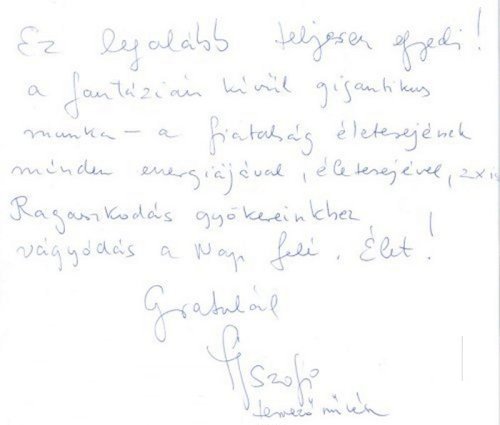 Ez legalább teljesen egyedi!
a fantázián kívül gigantikus
munka – a fiatalság életerejének
minden energiájával, életerejével, 2x is
Ragaszkodás gyökereinkhez
vágyódás a Nap felé. Élet!
Gratulál
Szofi